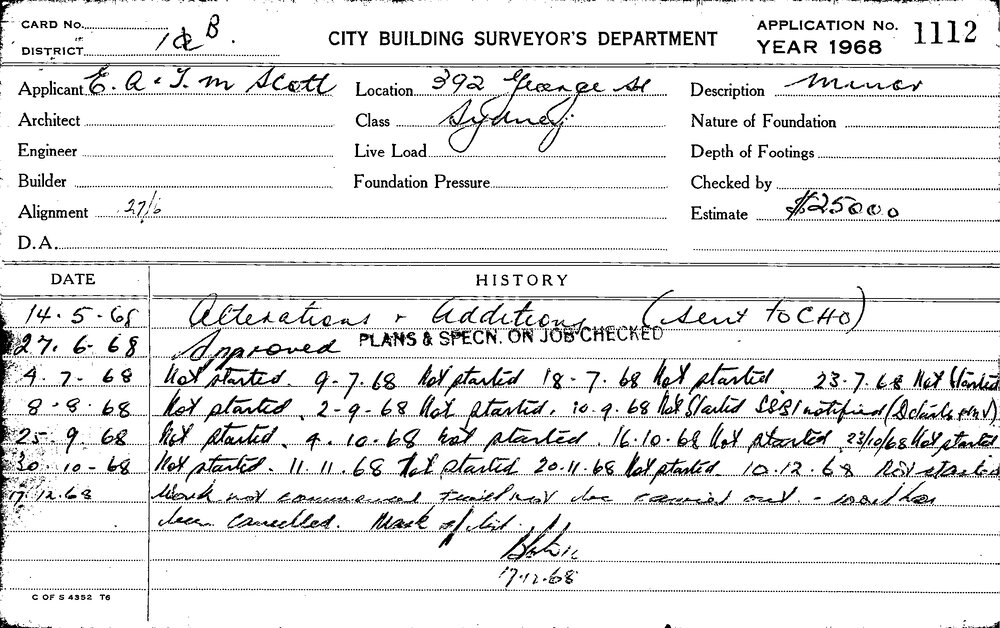 CARD No.
DISTRICT 1 & B.
CITY BUILDING SURVEYOR'S DEPARTMENT
APPLICATION No. 1112
YEAR 1968
Applicant E. A & T. M Scott Location 392 George St Description Minor
Architect Class Sydney Nature of Foundation
Engineer Live Load Depth of Footings
Builder Foundation Pressure Checked by
Alignment 27/6 Estimate $25000
D.A.
DATE HISTORY
14.5.68 Alterations & Additions (sent to CHO)
27.6.68 Approved PLANS & SPECN. ON JOB CHECKED
4.7.68 Not started. 9-7.68 Not started 18-7.68 Not started. 23-7.68 Not started
8-8.68 Not started. 2-9-68 Not started. 10.9.68 Not Started notified
25.9.68 Not started. 4.10.68 not started. 16.10.68 Not started 23/10/68 Not started
30.10-68 Not started. 11.11.68 Not started 20.11.68 Not started 10.12.68 Not started
17.12.68 Work not commenced & will not be carried out. - work has
been cancelled. Mark off list.
17.12.68
C OF S 4352 T6